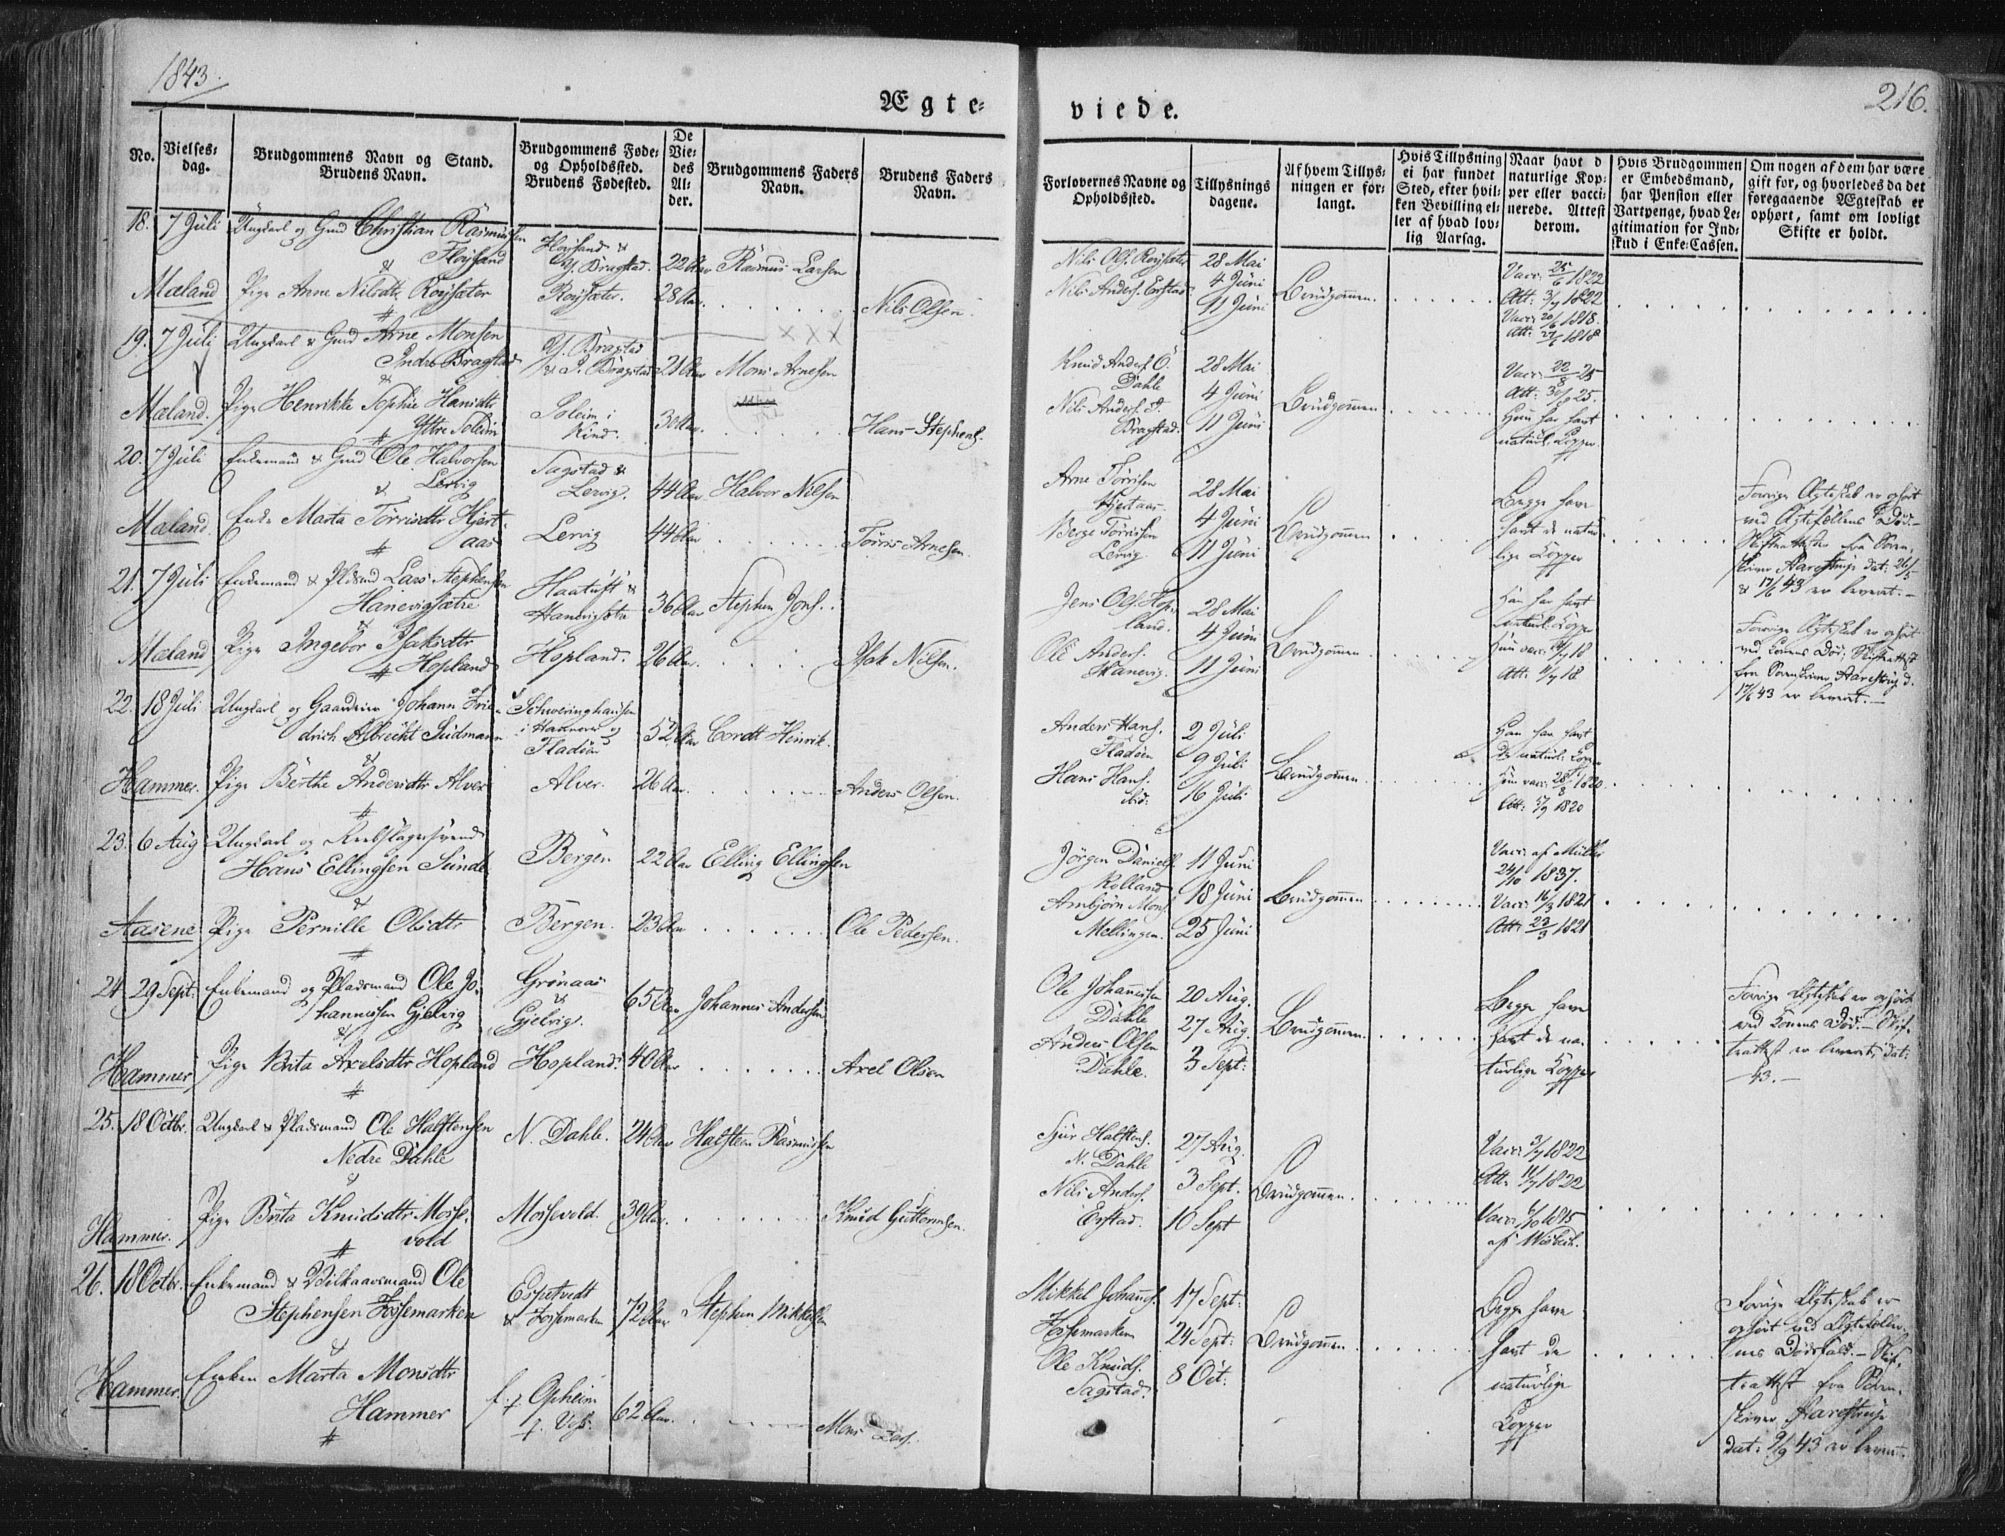 1843.
216.
Ægte=
viede.
No.
Vielses=
dag.
Brudgommens Navn og Stand.
Brudens Navn.
Brudgommens Føde=
og Opholdssted.
Brudens Fødested.
De
Vie=
des
Al=
der.
Brudgommens Faders
Navn.
Brudens Faders
Navn.
Forlovernes Navne og
Opholdssted.
Tillysnings
dagene.
Af hvem Tillys=
ningen er for=
langt.
Hvis Tillysning
ei har fundet
Sted, efter hvil=
ken Bevilling el=
ler af hvad lov=
lig Aarsag.
Naar havt d
naturlige Kop=
per eller vacci=
nerede. Attest
derom.
Hvis Brudgommen
er Embedsmand,
har Pension eller
Vartpenge, hvad Le=
gitimation for Ind=
skud i Enke-Cassen.
Om nogen af dem har være
gift før, og hvorledes da det
foregaaende Ægteskab er
ophørt, samt om lovligt
Skifte er holdt.
18. 7 Juli Ungkarl og Gmd Christian Rasmussen
Fløisand
Y. Bragstad. 22 Aar Rasmus Larsen
Mæland Pige Anne Nilsdtr Røysæter Røysæter. 28 Aar Nils Olsen.
Nils Ols. Røysæter
Nils Anders. Erstad
28 Mai
4 Juni
11 Juni
Brudgommen.
Vacc: 25/6 1822
Att: 3/7 1822
Vacc: 20/6 1818.
Att: 27/6 1818
19. 7 Juli Ungkarl & Gmd Arne Monsen
Indre Bragstad
Y. Bragstad
& I. Bragstad 21 Aar Mons Arnesen
Mæland. Pige Henrikke Sophie Hansdtr
Yttre Soleim
Soleim i
Kind. 30 Aar Hans Stephens.
Knud Anders. Ø.
Dahle
Nils Anders. I.
Bragstad.
28 Mai
4 Juni
11 Juni
Brudgommen
Vacc: 22/8 25
Att: 30/8 25.
Hun har havt
naturl: Kopper
20. 7 Juli Enkemand & Gmd Ole Halvorsen
Lervig
Sagstad &
Lervig. 44 Aar Halvor Nilsen
Mæland. Enke Marta Torrisdtr Hjert=
aas Lervig 44 Aar Torris Arnesen.
Arne Torrisen
Hjertaas
Berge Torrisen
Lervig
28 Mai
4 Juni
11 Juni
Brudgommen
Begge have
havt de natur=
lige Kopper
Forrige Ægteskab er ophørt
ved Ægtefællens Død. –
Skifteattester fra Soren=
skriver Aarestrup dat: 26/5
& 17/6 43 er leveret. –
21. 7 Juli Enkemand & Pldsmd Lars Stephensen
Hanevigsætre
Haatuft &
Hanevigsætre 36 Aar Stephen Jons.
Mæland Pige Ingebor Isaksdtr
Hopland Hopland. 26 Aar Isak Nilsen.
Jens Ols. Hop=
land.
Ole Anders.
Hanevig.
28 Mai
4 Juni
11 Juni
Brudgommen
Han har havt
naturl: Kopper
Hun vacc: 18
Att: 18
Forrige Ægteskab er ophørt
ved Konens Død; Skifteattest
fra Sorenskriver Aarestrup d.
17/6 43 er leveret. –
22. 18 Juli Ungkarl og Gaardeier Johann Frie=
drich Albrecht Südmann
Schweringhausen
i Hannover og
Fladøen 52 Aar Cordt Heinrik
Hammer. Pige Berthe Andersdtr Alver Alver. 26 Aar Anders Olsen.
Anders Hans.
Fladøen
Hans Hans.
ibid.
2 Juli
9 Juli
16 Juli
Brudgommen
Han har havt
de naturl: Kopper
Hun vacc: 28/8 1820
Att: 1820
23. 6 Aug Ungkarl og Reebslagersvend
Hans Ellingsen Sunde Bergen 22 Aar Elling Ellingsen
Aasene Pige Pernille Olsdtr Bergen. 23 Aar Ole Pedersen.
Jørgen Daniels.
Rolland
Arnbjørn Mons.
Mellingen.
11 Juni
18 Juni
25 Juni
Brudgommen
Vacc: af Müller
24/10 1837.
Vacc: 16/3 1821
Att: 23/3 1821
24. 29 Sept: Enkemand og Pladsmand Ole Jo=
hannessen Gjelvig
Grønaas
&
Gjelvig. 65 Aar Johannes Andersen
Hammer Pige Brita Axelsdtr Hopland Hopland. 40 Aar Axel Olsen
Ole Johannesen
Dahle
Anders Olsen
Dahle.
20 Aug.
27 Aug.
3 Sept:
Brudgommen
Begge have
havt de na=
turlige Kopper
Forrige Ægteskab er ophørt
ved Konens Død. – Skif=
teattest er leveret, dat:
43. –
25. 18 Octbr. Ungkarl & Pladsmand Ole Halstensen
Nedre Dahle N. Dahle. 24 Aar Halsteen Rasmussen
Hammer. Pige Brita Knudsdtr Mosse=
vold Mossevold. 39 Aar Knud Guttormsen.
Sjur Halstens.
N. Dahle
Nils Anders.
Erstad.
27 Aug.
3 Sept.
10 Sept
Brudgommen.
Vacc: 3/7 1822
Att: 11/7 1822
Vacc: 1815
af Wisbech.
26. 18 Octbr. Enkemand & Vilkaarsmand Ole
Stephensen Fossemarken
Espetvedt
& Fossemarken 72 Aar Stephen Mikkelsen
Hammer. Enken Marta Monsdtr
Hammer
Opheim
p. Voss. 62 Aar. Mons
Mikkel Johannes.
Fossemarken
Ole Knuds.
Sagstad.
17 Sept:
24 Sept:
8 Oct:
Brudgommen
Begge have
havt de
naturlige
Kopper
Forrige Ægteskab er
ophørt ved Ægtefæller=
nes Dødsfald. – Skif=
teattest fra Soren=
skriver Aarestrup
dat: 9/9 43 er leveret.